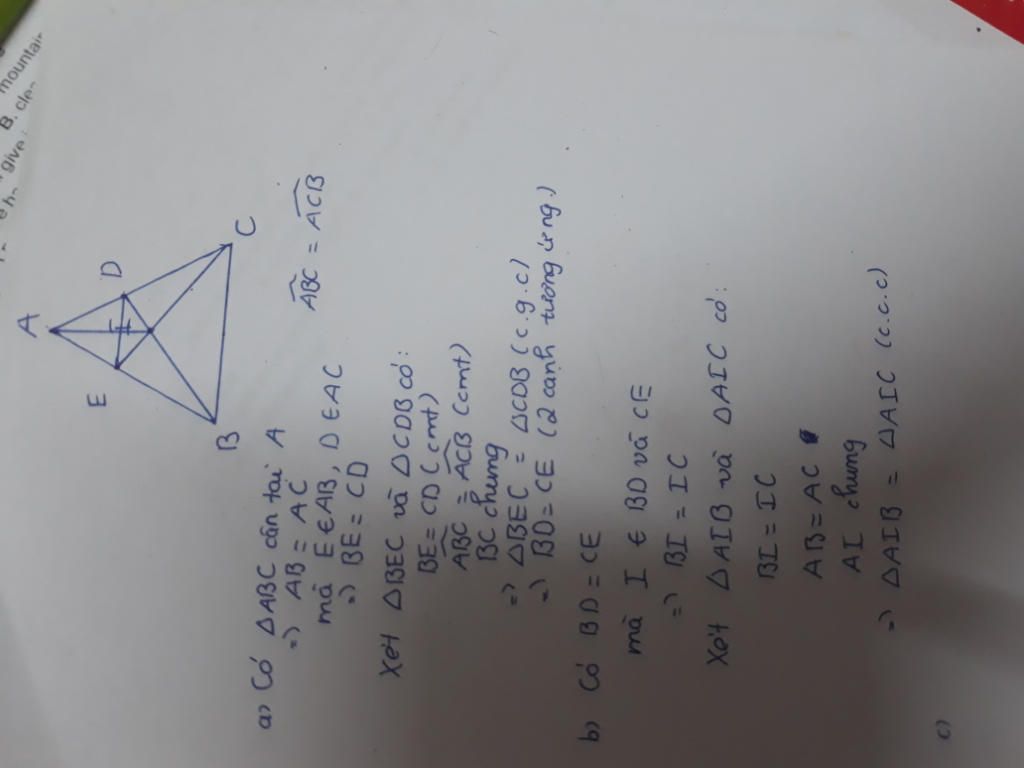 mountain
B. cle
give
A
E
D
B
C
a) Có △ABC cân tại A
=) AB = AC
ABC = ACB
mà E ∈ AB, D ∈ AC
=) BE = CD
Xét △BEC và △CDB có:
BE = CD (cmt)
ABC = ACB (cmt)
BC chung
=) △BEC = △CDB (c.g.c)
=) BD = CE (2 cạnh tương ứng)
b) Có BD = CE
mà I ∈ BD và CE
=) BI = IC
Xét △AIB và △AIC có:
BI = IC
AB = AC
AI chung
=) △AIB = △AIC (c.c.c)
c)